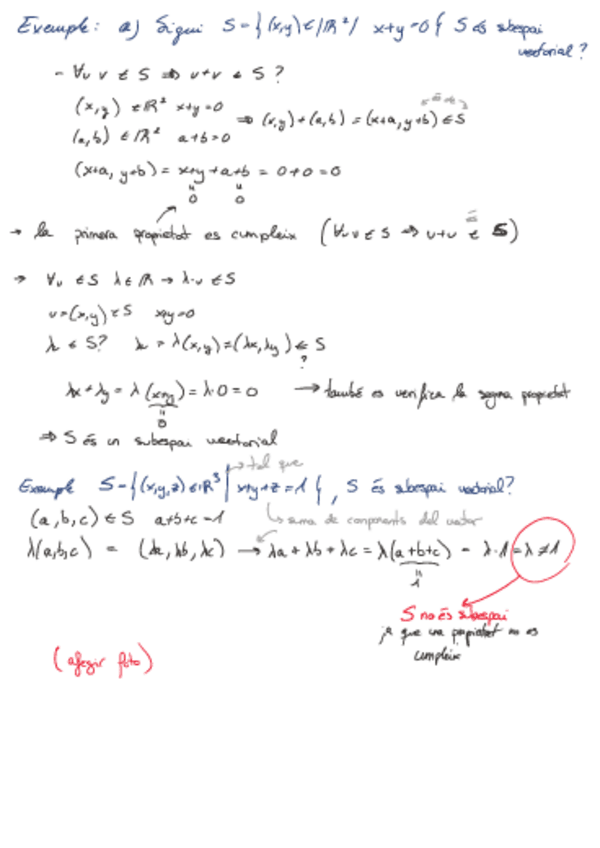 Exemple: a) Sigui S={(x,y)∈/R²/ x+y=0} S és subespai
vectorial?
- ∀u v ∈ S ⇒ u+v ∈ S?
(x,y) ∈ R² x+y=0
(a,b) ∈ R² a+b=0
⇒ (x,y)+(a,b) = (x+a, y+b) ∈ S
(x+a, y+b) = x+y+a+b = 0+0=0
0 0
→ la primera propietat es cumpleix (∀u v ∈ S ⇒ u+v ∈ S)
→ ∀u ∈ S λ∈R → λ·u ∈ S
u=(x,y) ∈ S x+y=0
λu ∈ S? λu = λ(x,y)=(λx,λy) ∈ S
?
λx+λy = λ(x+y) = λ·0=0 → també es verifica la segona propietat
0
⇒ S és un subespai vectorial
→ tal que
Exemple S={(x,y,z)∈R³ | x+y+z=1}, S és subespai vectorial?
(a,b,c)∈S a+b+c=1 ↳ suma de components del vector
λ(a,b,c) = (λa, λb, λc) → λa+λb+λc = λ(a+b+c) = λ·1=λ≠1
1
S no és subespai
ja que una propietat no es
cumpleix
(afegir foto)